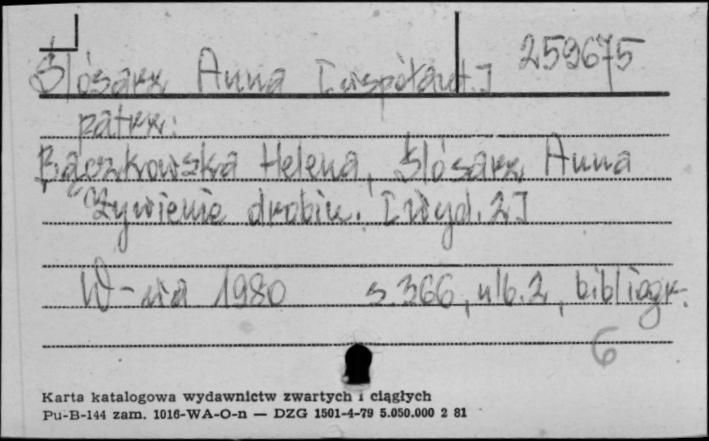 Ślósarz Anna [współaut.] 259675
patrz:
Bączkowska Helena, Ślósarz Anna
Żywienie drobiu. [Wyd. 2]
W-wa 1980 s. 366, nlb. 2, bibliogr.
6
Karta katalogowa wydawnictw zwartych i ciągłych
Pu-B-144 zam. 1016-WA-O-n — DZG 1501-4-79 5.050.000 2 81